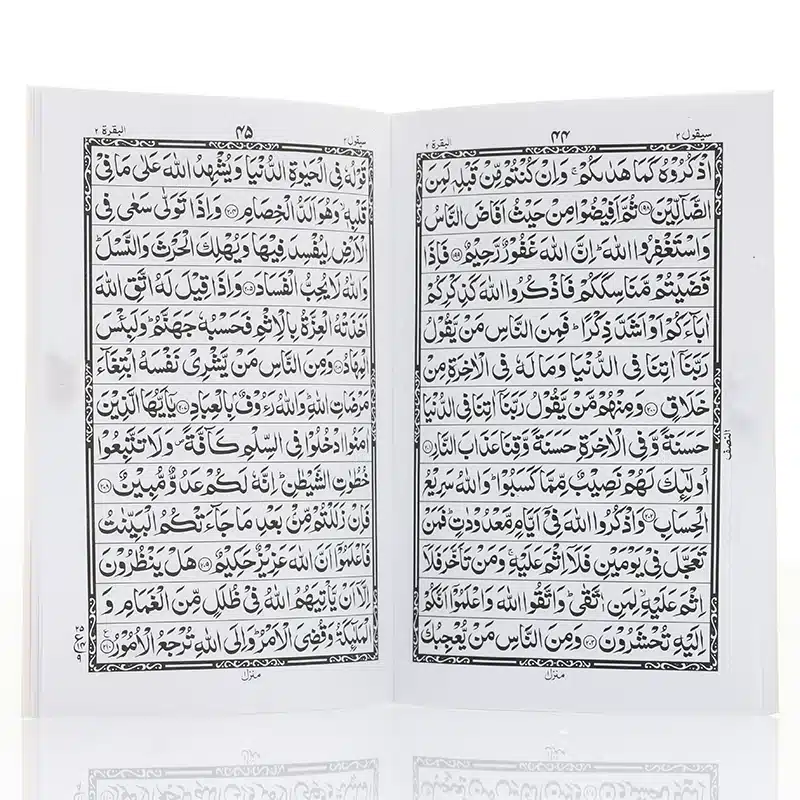 سيقول ٢
۴۴
البقرة ٢
اذْكُرُوْهُ كَمَا هَدٰىكُمْ ۚ وَاِنْ كُنْتُمْ مِّنْ قَبْلِهٖ لَمِنَ
الضَّآلِّيْنَ ۝١٩٨ ثُمَّ اَفِيْضُوْا مِنْ حَيْثُ اَفَاضَ النَّاسُ
وَاسْتَغْفِرُوا اللّٰهَ ؕ اِنَّ اللّٰهَ غَفُوْرٌ رَّحِيْمٌ ۝١٩٩ فَاِذَا
قَضَيْتُمْ مَّنَاسِكَكُمْ فَاذْكُرُوا اللّٰهَ كَذِكْرِكُمْ
اٰبَآءَكُمْ اَوْ اَشَدَّ ذِكْرًا ؕ فَمِنَ النَّاسِ مَنْ يَّقُوْلُ
رَبَّنَآ اٰتِنَا فِى الدُّنْيَا وَمَا لَهٗ فِى الْاٰخِرَةِ مِنْ
خَلَاقٍ ۝٢٠٠ وَمِنْهُمْ مَّنْ يَّقُوْلُ رَبَّنَآ اٰتِنَا فِى الدُّنْيَا
حَسَنَةً وَّفِى الْاٰخِرَةِ حَسَنَةً وَّقِنَا عَذَابَ النَّارِ ۝٢٠١
النصف
اُولٰٓئِكَ لَهُمْ نَصِيْبٌ مِّمَّا كَسَبُوْا ؕ وَاللّٰهُ سَرِيْعُ
الْحِسَابِ ۝٢٠٢ وَاذْكُرُوا اللّٰهَ فِىْٓ اَيَّامٍ مَّعْدُوْدٰتٍ ؕ فَمَنْ
تَعَجَّلَ فِىْ يَوْمَيْنِ فَلَآ اِثْمَ عَلَيْهِ ۚ وَمَنْ تَاَخَّرَ فَلَآ
اِثْمَ عَلَيْهِ ۙ لِمَنِ اتَّقٰى ؕ وَاتَّقُوا اللّٰهَ وَاعْلَمُوْٓا اَنَّكُمْ
اِلَيْهِ تُحْشَرُوْنَ ۝٢٠٣ وَمِنَ النَّاسِ مَنْ يُّعْجِبُكَ
منزل
سيقول ٢
۴۵
البقرة ٢
قَوْلُهٗ فِى الْحَيٰوةِ الدُّنْيَا وَيُشْهِدُ اللّٰهَ عَلٰى مَا فِىْ
قَلْبِهٖ ۙ وَهُوَ اَلَدُّ الْخِصَامِ ۝٢٠٤ وَاِذَا تَوَلّٰى سَعٰى فِى
الْاَرْضِ لِيُفْسِدَ فِيْهَا وَيُهْلِكَ الْحَرْثَ وَالنَّسْلَ ؕ
وَاللّٰهُ لَا يُحِبُّ الْفَسَادَ ۝٢٠٥ وَاِذَا قِيْلَ لَهُ اتَّقِ اللّٰهَ
اَخَذَتْهُ الْعِزَّةُ بِالْاِثْمِ فَحَسْبُهٗ جَهَنَّمُ ؕ وَلَبِئْسَ
الْمِهَادُ ۝٢٠٦ وَمِنَ النَّاسِ مَنْ يَّشْرِىْ نَفْسَهُ ابْتِغَآءَ
مَرْضَاتِ اللّٰهِ ؕ وَاللّٰهُ رَءُوْفٌۢ بِالْعِبَادِ ۝٢٠٧ يٰٓاَيُّهَا الَّذِيْنَ
اٰمَنُوا ادْخُلُوْا فِى السِّلْمِ كَآفَّةً ۪ وَلَا تَتَّبِعُوْا
خُطُوٰتِ الشَّيْطٰنِ ؕ اِنَّهٗ لَكُمْ عَدُوٌّ مُّبِيْنٌ ۝٢٠٨
فَاِنْ زَلَلْتُمْ مِّنْۢ بَعْدِ مَا جَآءَتْكُمُ الْبَيِّنٰتُ
فَاعْلَمُوْٓا اَنَّ اللّٰهَ عَزِيْزٌ حَكِيْمٌ ۝٢٠٩ هَلْ يَنْظُرُوْنَ
اِلَّآ اَنْ يَّاْتِيَهُمُ اللّٰهُ فِىْ ظُلَلٍ مِّنَ الْغَمَامِ وَ
الْمَلٰٓئِكَةُ وَقُضِىَ الْاَمْرُ ؕ وَاِلَى اللّٰهِ تُرْجَعُ الْاُمُوْرُ ۝٢١٠
منزل